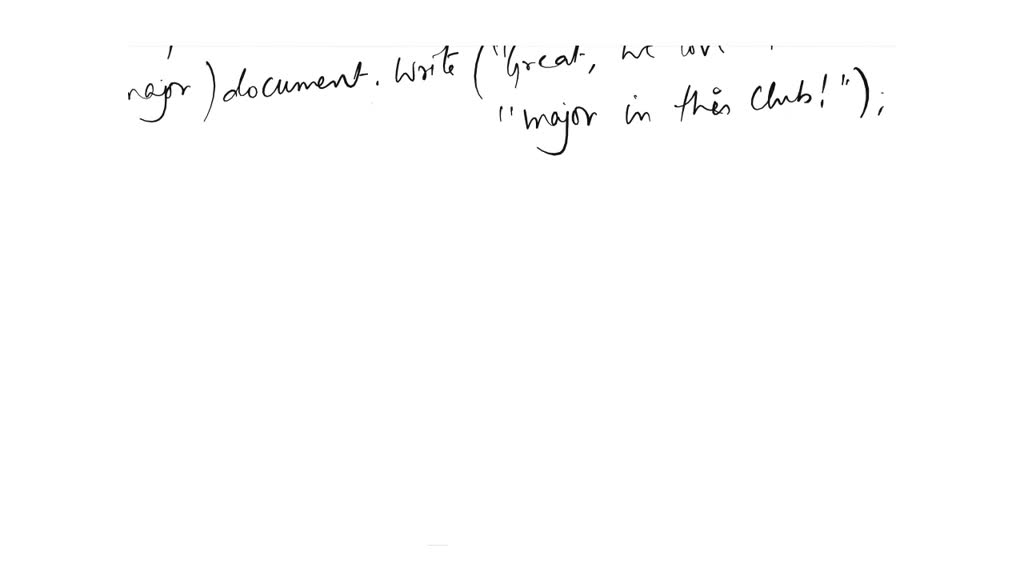 major) document. Write ("Great, we
"major in this Club!");